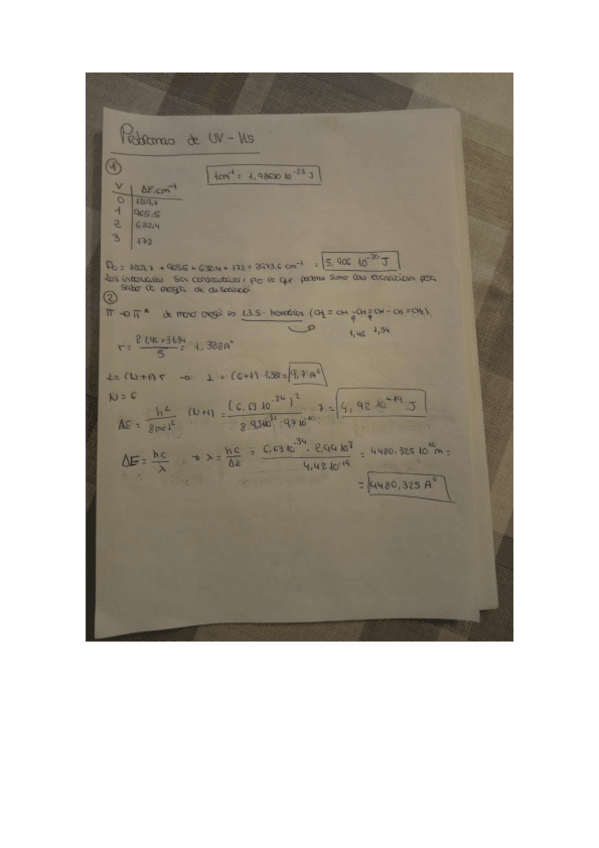 Problemas de UV-Vis
①
1cm⁻¹ = 1,9862·10⁻²³ J
V ΔE, cm⁻¹
0
1 965,5
2 632,4
3 172
+ 965,5 + 632,4 + 172 = cm⁻¹ = 5,906·10⁻²⁰ J
Los intervalos son consecutivos, por lo que podemos sumar para
saber la energía de disociación
②
π → π* de menor energía es 1.3.5- hexatrieno (CH₂ = CH - CH = CH - CH = CH₂)
1,46 1,34
r = 2·1,46+3·1,34 / 5 = 1,388 A°
L = (N+1) r → L = (6+1)·1,388 = 9,7 A°
N = 6
ΔE = h² / 8(mL)² (N+1) = (6,63·10⁻³⁴)² / · 9,7·10⁻¹⁰ · 7 = 4,42·10⁻¹⁹ J
ΔE = hc / λ → λ = hc / ΔE = 6,63·10⁻³⁴ · 2,99·10⁸ / 4,42·10⁻¹⁹ = 4480,325·10⁻¹⁰ m =
= 4480,325 A°